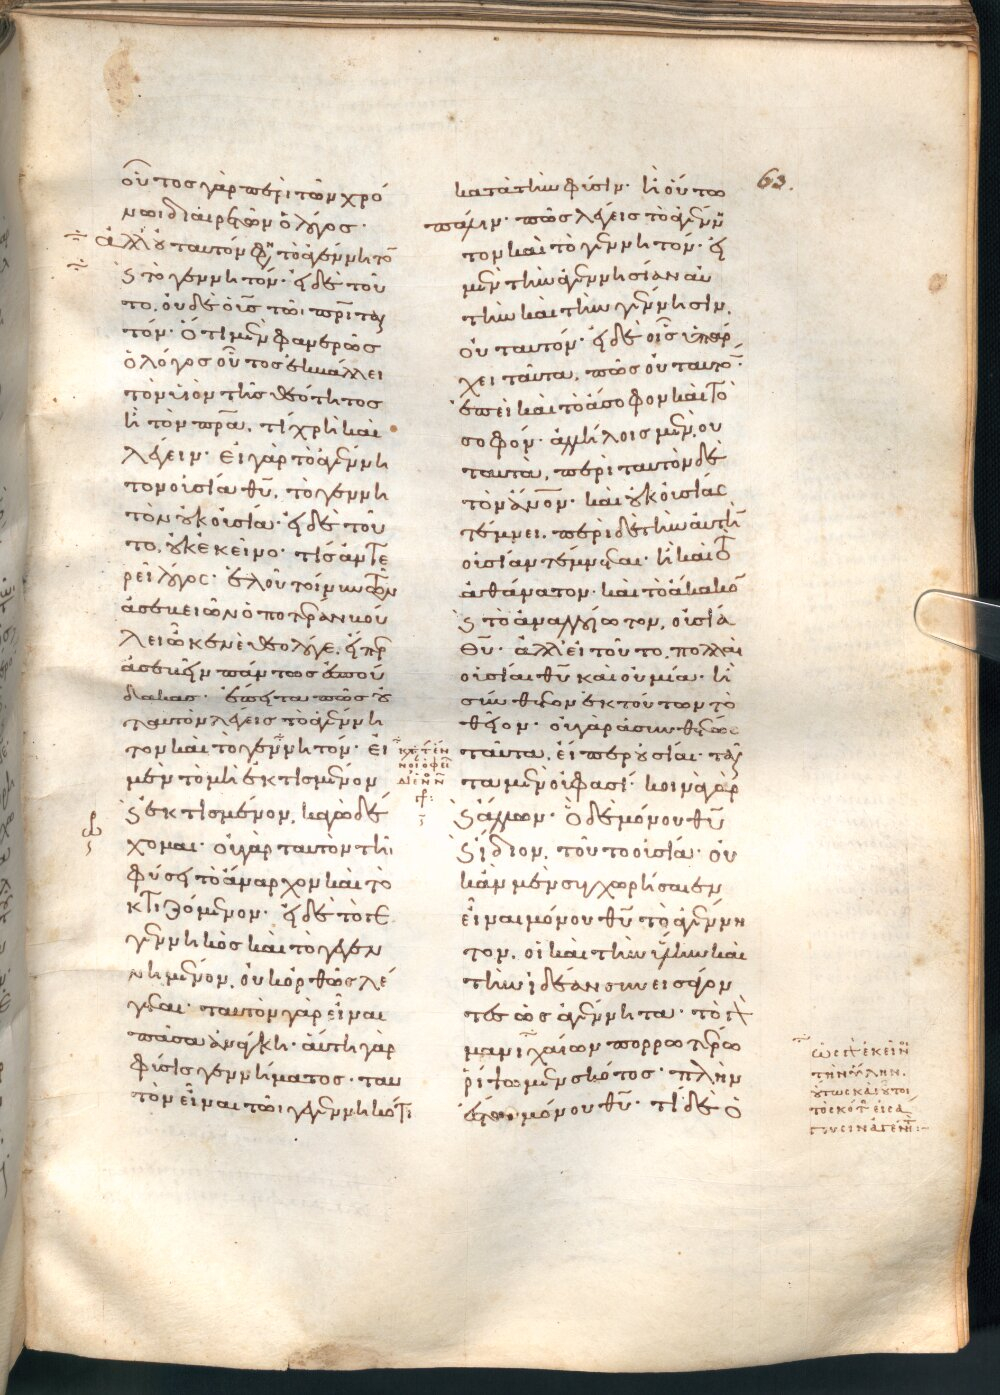 οὗτος γὰρ περὶ τῶν χρό
νωι διαιρετῶν ὁ λόγος·
ἀλλ' οὐ ταυτόν φη(σι) τὸ ἀγέννητο(ν)
ϗ τὸ γεννητόν· εἰ δὲ τοῦ
το, οὐδὲ ὁ υἱς τῶι πρι ταυ
τόν· ὅτι μὲν φανερῶς
ὁ λόγος οὗτος ἐκβάλλει
τὸν υἱὸν τῆς θεότητος
ἢ τὸν πρα, τί χρὴ καὶ
λέγειν· εἰ γὰρ τὸ ἀγέννη
τον οὐσία θυ, τὸ γεννη
τὸν οὐκ οὐσία· εἰ δὲ τοῦ
το, οὐκ ἐκεῖνο· τίς ἀντε
ρεῖ λόγος· ἑλοῦ τοίνυν τῶν
ἀσεβειῶν ὁποτέραν βού
λει ὦ κενὲ θεολόγε, εἴπερ
ἀσεβεῖν πάντως ἐσπού
δακας· ἔπειτα πῶς οὐ
ταυτὸν λέγεις τὸ ἀγέννη
τον καὶ τὸ γεννητόν· εἰ
μὲν τὸ μὴ ἐκτισμένον
ϗ ἐκτισμένον, κἀγὼ δέ
χομαι· οὐ γὰρ ταυτὸν τῆι
φύσει τὸ ἄναρχον καὶ τὸ
κτιζόμενον· εἰ δὲ τὸ γε
γεννηκὸς καὶ τὸ γεγεν
νημένον, οὐκ ὀρθῶς λέ
γεται· ταυτὸν γὰρ εἶναι
πᾶσα ἀνάγκη· αὐτὴ γὰρ
φύσις γεννήματος· ταυ
τὸν εἶναι τῶι γεγεννηκότι
63.
κατὰ τὴν φύσιν· ἢ οὕτω
πάλιν· πῶς λέγεις τὸ ἀγέννη
τον καὶ τὸ γεννητόν· εἰ
μὲν τὴν ἀγεννησίαν αὐ
τὴν καὶ τὴν γέννησιν,
οὐ ταυτόν· εἰ δὲ οἷς ὑπάρ
χει ταῦτα, πῶς οὐ ταυτό(ν)·
ἐπεὶ καὶ τὸ ἄσοφον καὶ τὸ
σοφόν· ἀλλήλοις μὲν, οὐ
ταυτὰ, περὶ ταυτὸν δὲ
τὸν ἄνον· καὶ οὐκ οὐσίας
τέμνει, περὶ δὲ τὴν αὐτὴν
οὐσίαν τέμνεται· ἢ καὶ τὸ
ἀθάνατον· καὶ τὸ ἄκακο(ν)
ϗ τὸ ἀναλλοίωτον, οὐσία
θυ· ἀλλ' εἰ τοῦτο, πολλαὶ
οὐσίαι θυ καὶ οὐ μία· ἢ
σύνθετον ἐκ τούτων τὸ
θεῖον· οὐ γὰρ ἀσυνθέτως
ταῦτα, εἴπερ οὐσίαι· ταῦ
τα μὲν οὔ φασι· κοινὰ γὰρ
ϗ ἄλλων· ὃ δὲ μόνου θυ
ϗ ἴδιον, τοῦτο οὐσία· οὐ
κἂν μὲν συγχωρήσαιεν
εἶναι μόνου θυ τὸ ἀγέννη
τον, οἱ καὶ τὴν ὕλην καὶ
τὴν ἰδέαν συνεισάγον
τες ὡς ἀγέννητα· τὸ γὰρ
μανιχαίων πορρωτέρω
ῥίψωμεν σκότος· πλὴν
ἔστω μόνου θυ· τί δὲ ὁ
ὥσπερ ἐκεῖνοι
τὴν ὕλην,
οὕτως καὶ οὗτοι
τὸ σκότος εἰσά
γουσιν ἀγέννητ: